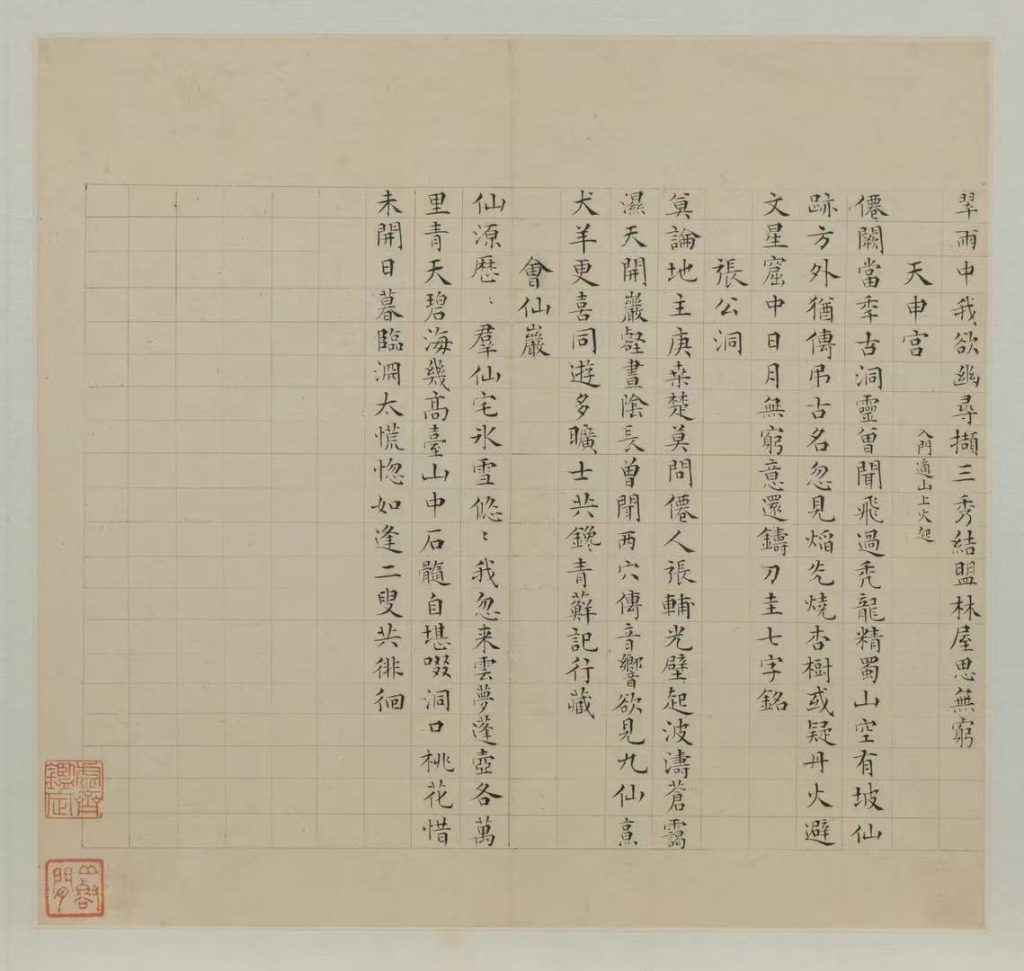 翠雨中我欲幽尋擷三秀結盟林屋思無窮
天申宮 入門適山上火起
僊闕當年古洞靈曾聞飛過禿龍精蜀山空有坡仙
跡方外猶傳吊古名忽見焰光燒杏樹或疑丹火避
文星窟中日月無窮意還鑄刀圭七字銘
張公洞
莫論地主庚桒楚莫問僊人張輔光壁起波濤蒼靄
濕天開巖壑晝陰長曾聞兩穴傳音響欲見九仙亯
犬羊更喜同遊多曠士共鑱青蘚記行藏
會仙巖
仙源歷〻羣仙宅氷雪悠〻我忽来雲夢蓬壺各萬
里青天碧海幾高臺山中石髓自堪啜洞口桃花惜
未開日暮臨淵太慌惚如逢二叟共徘徊
虛齋鑑定